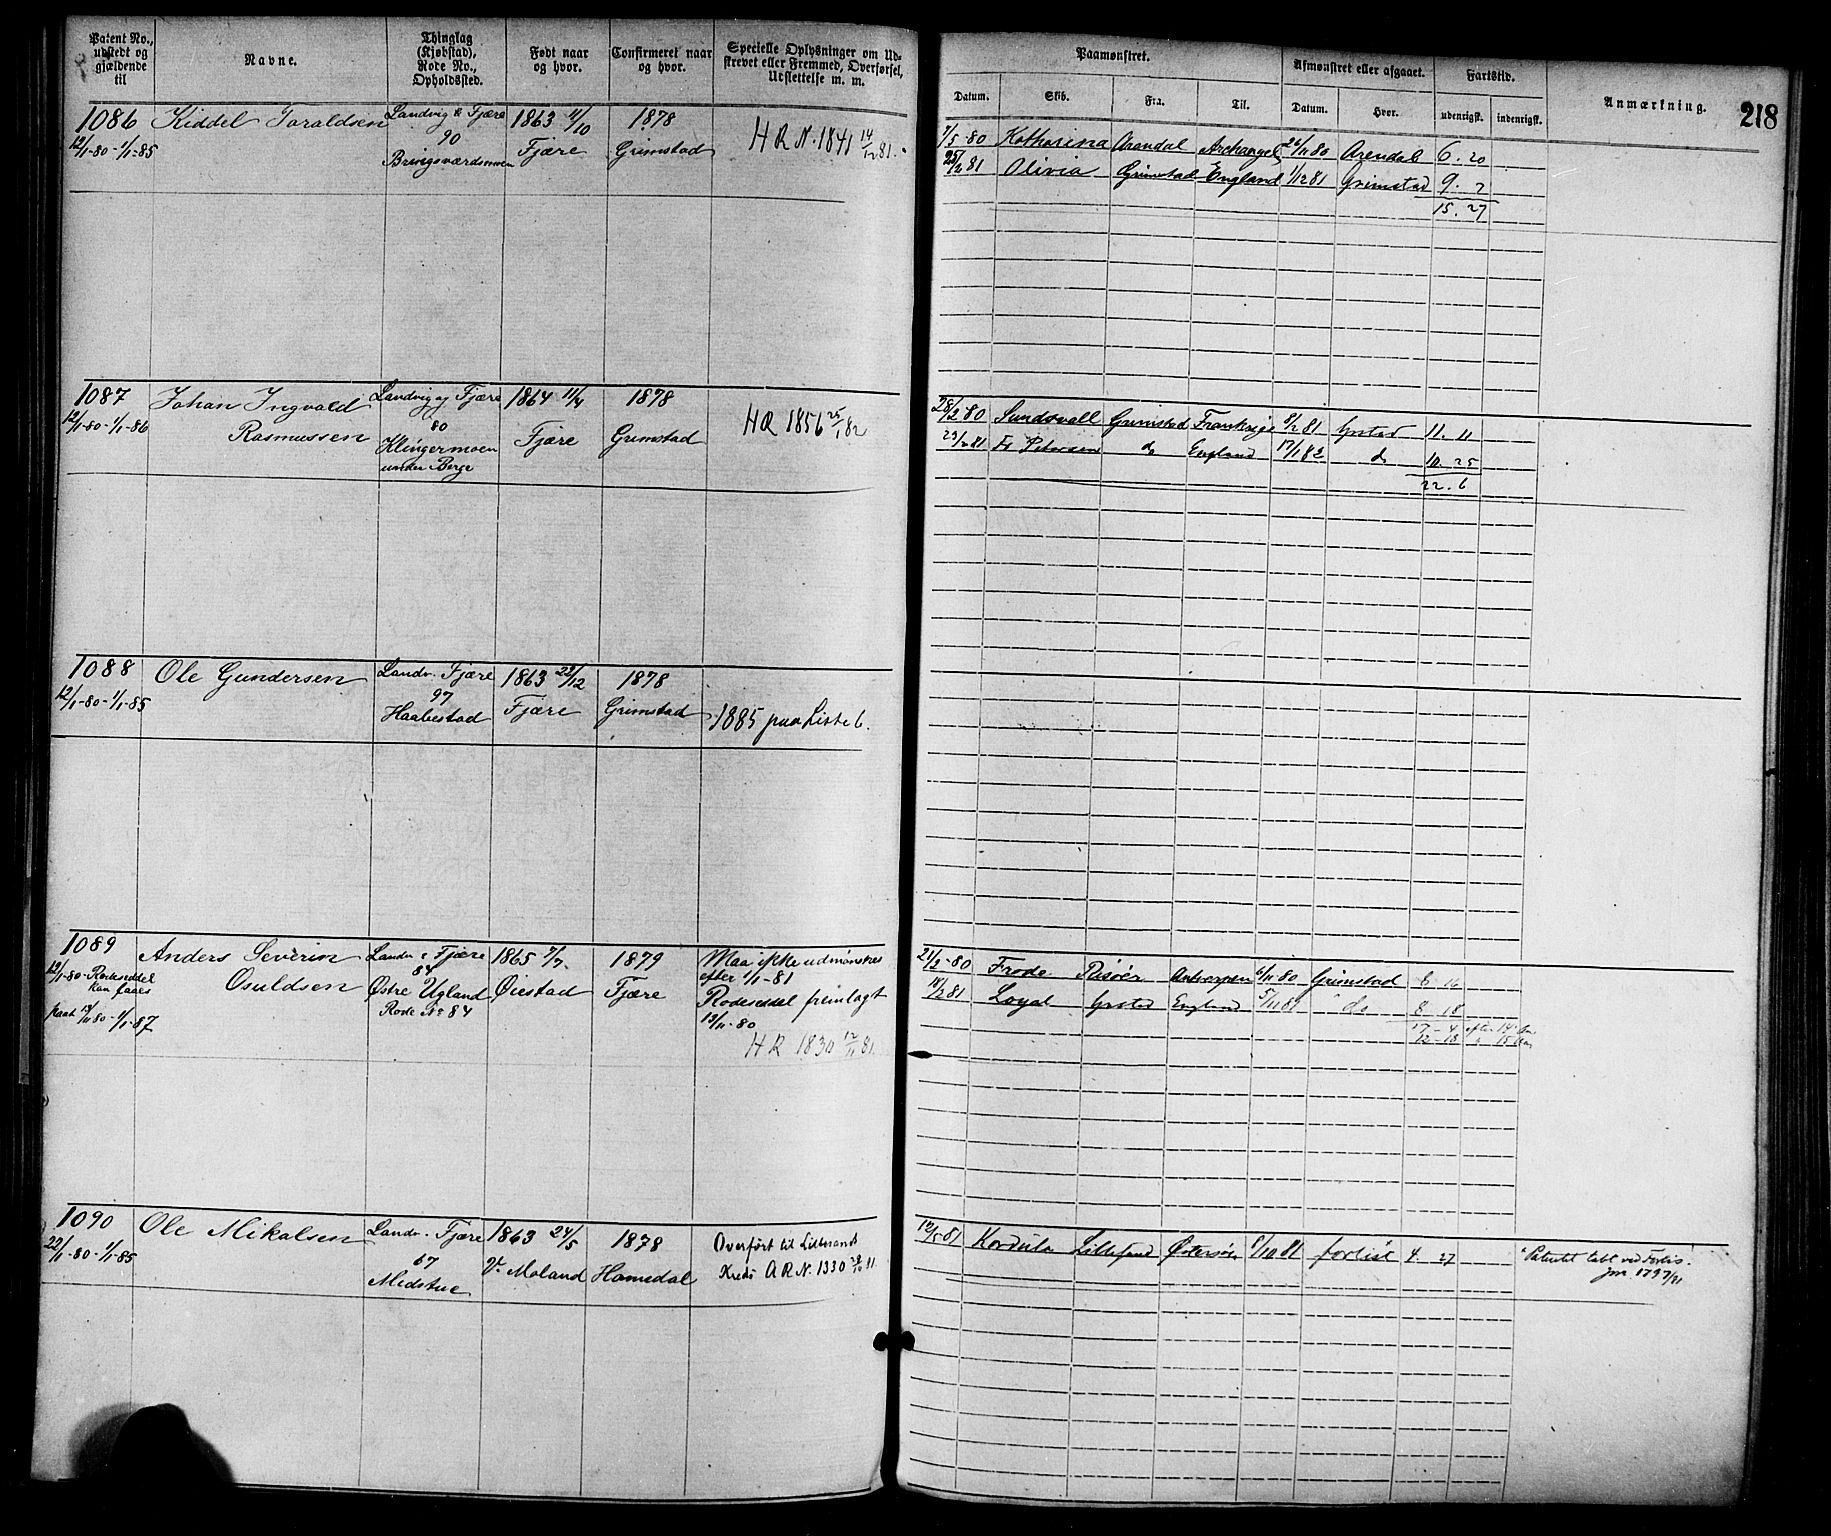 Patent No., udstedt og gjældende til
Navne.
Thinglag (Kjøbstad), Rode No., Opholdssted.
Født naar og hvor.
Confirmeret naar og hvor.
Specielle Oplysninger om Udskrevet eller Fremmed, Overførsel, Udslettelse m. m.
Paamønstret.
Afmønstret eller afgaaet.
Fartstid.
Anmærkning.
218
Datum.
Skib.
Fra.
Til.
Datum.
Hvor.
udenrigsk.
indenrigsk.
1086 Kiddel Taraldsen Landvig & Fjære 1863 11/10 1878 H R N. 1841 14/12 81.
12/1-80-1/1-85 90 Fjære Grimstad
Brivigsværdsmoen
7/5-80 Katharina Arendal Archangel 26/11 80 Arendal 6. 20
25/2 81 Olivia Grimstad England 1/12 81 Grimstad 9. 7
15. 27
1087 Johan Ingvald Landvig og Fjære 1864 11/4 1878 H R 1856 25/1 82
12/1-80-1/1-86 Rasmussen 80 Fjære Grimstad
Klingermoen
under Berge
28/2-80 Sundsvall Grimstad Frankrige 8/2 81 Grstad 11. 11
23/2 81 Fr Petersen do England 17/1 82 do 10. 25
22. 6
1088 Ole Gundersen Landv. Fjære 1863 29/12 1878
12/1-80-1/1-85 97 Fjære Grimstad 1885 paa Liste 6.
Haabestad
1089 Anders Severin Landv & Fjære 1865 7/7. 1879 Maa ikke udmønstres
12/1-80-Rodeseddel Osuldsen 84 Øiestad Fjære efter 1/1-81
kan faaes Østre Ugland Rodeseddel fremlagt
Rode No 84 13/11-80
80-1/1-87 H R 1830 12/11 81.
21/2-80 Frode Risöer Antwerpen 6/11-80 Grimstad 8 16
18/2 81 Loyal Grstad England 5/11 81 do 8 18
17-4
12-18
1090 Ole Mikalsen Landv. Fjære 1863 24/5 1878 Overført til Lillesands
22/1-80-1/1-85 67 V. Moland Homedal Kreds A R N. 1330 28/10 81
Midstue
12/5 81 Kordula Lillesand Østersøn 8/10 81 forlist 4. 27 Patentet tabt ved Forlis.
jnr. 1797/81